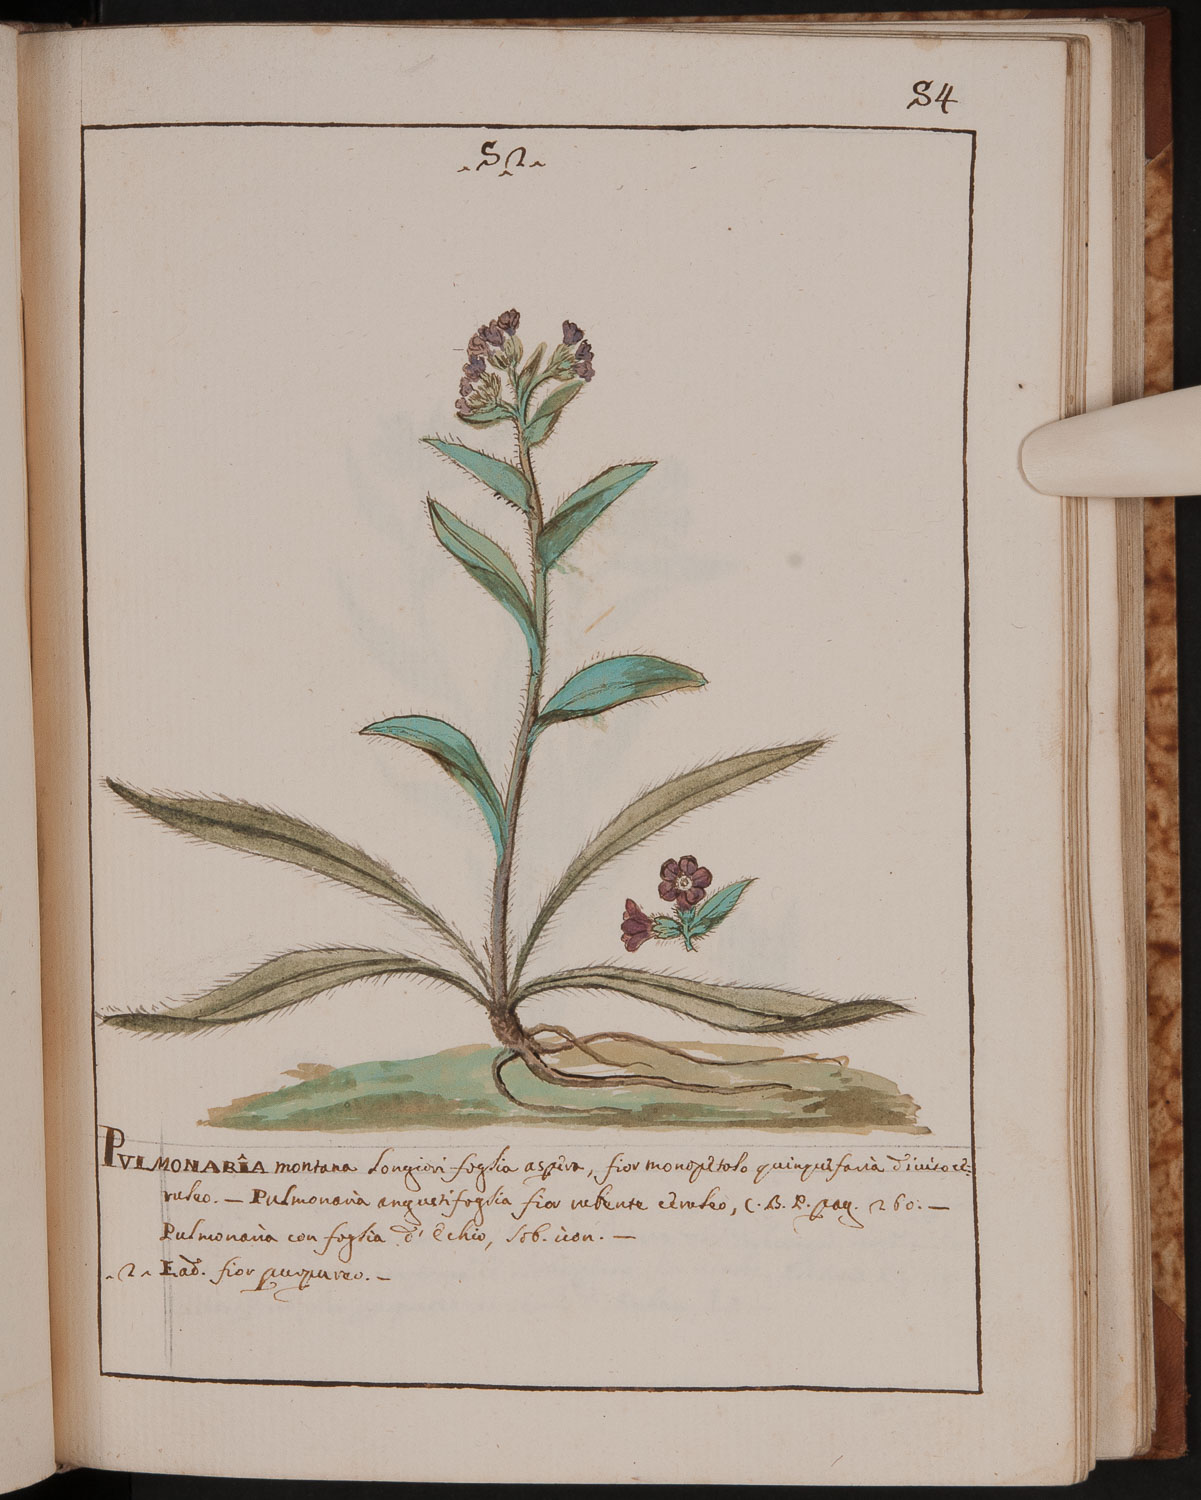 54
52
PVLMONARIA montana Longiori foglia aspera, fior monopetalo quinquefaria diuiso ce:
ruleo. — Pulmonaria angustifoglia fior rubente ceruleo, C. B. P. pag. 260. —
Pulmonaria con foglia d' Echio, Lob. icon. —
2 Ead. fior purpureo. —